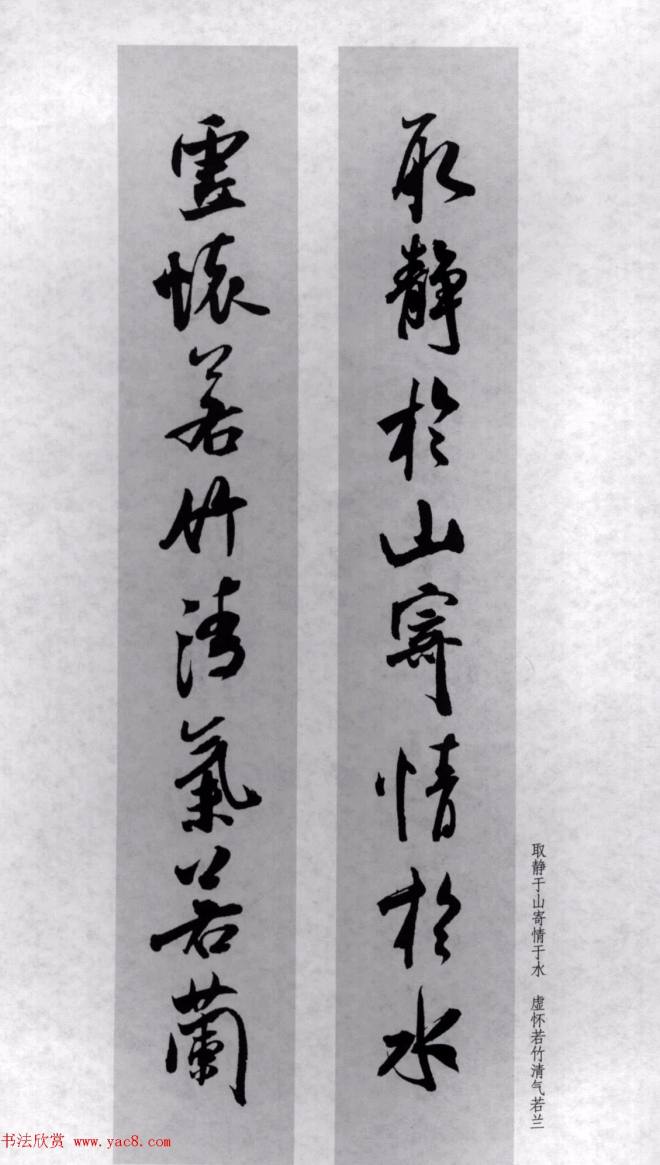 取靜於山寄情於水
虛懷若竹清氣若蘭
取静于山寄情于水 虚怀若竹清气若兰
书法欣赏 www.yac8.com